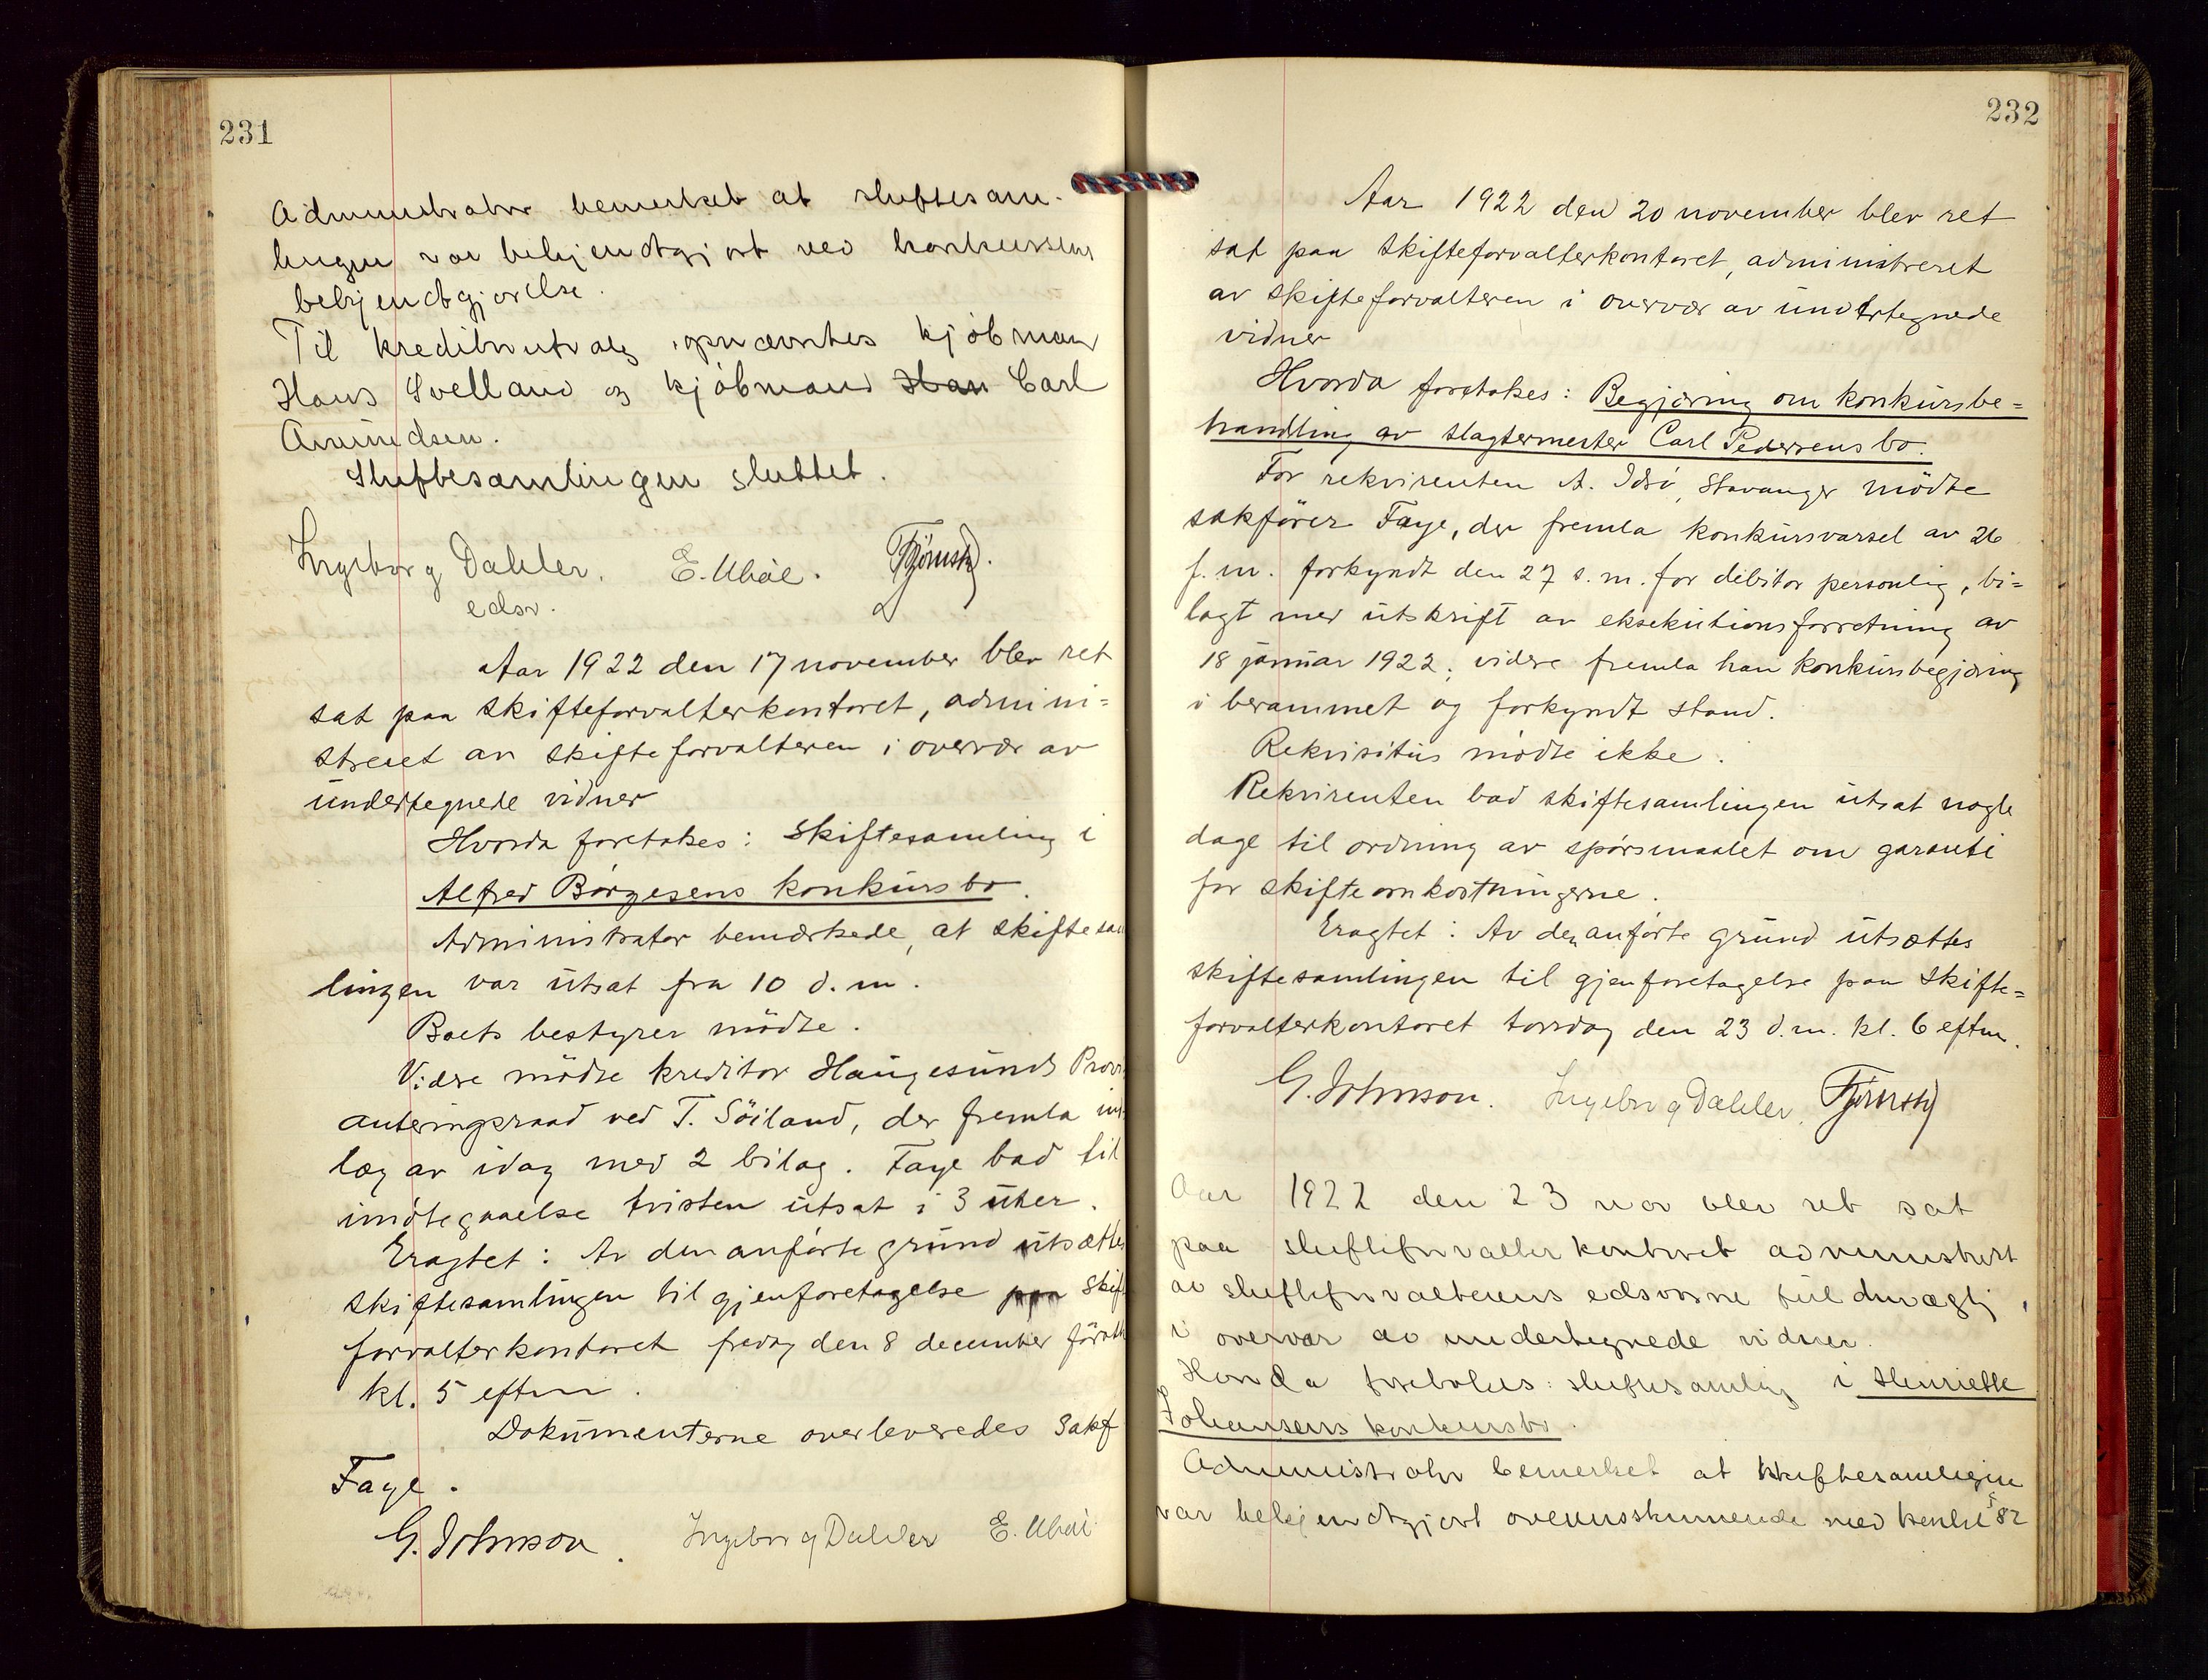 231
Administrator bemerket at skiftesam-
lingen var bekjendtgjort ved konkursens
bekjendtgjørelse.
Til kreditorutvalg opnævntes kjøbmand
Hans Svelland og kjøbmand Han Carl
Amundsen.
Skiftesamlingen sluttet.
Ingeborg Dahler. E. Ubøe.
edsv.
Aar 1922 den 17 november blev ret
sat paa skifteforvalterkontoret, admini=
streret av skifteforvalteren i overvær av
undertegnede vidner
Hvorda foretokes: Skiftesamling i
Alfred Børgesens konkursbo.
Administrator bemærkede, at skiftesam
lingen var utsat fra 10 d.m.
Boets bestyrer mødte.
Videre mødte kreditor Haugesunds Provi
anteringsraad ved T. Söiland, der fremla ind
læg av idag med 2 bilag. Faye bad til
imøtegaaelse tvisten utsat i 3 uker.
Eragtet: Av den anførte grund utsættes
skiftesamlingen til gjenforetagelse paa skif
forvalterkontoret fredag den 8 december førstk
kl. 5 eftm.
Dokumenterne overleveredes sakf
Faye.
G. Johnson. Ingeborg Dahler E. Ubøe
232
Aar 1922 den 20 november blev ret
sat paa skifteforvalterkontoret, administreret
av skifteforvalteren i overvær av undertegnede
vidner
Hvorda foretokes: Begjæring om konkursbe=
handling av slagtermester Carl Pedersens bo.
For rekvirenten A. Idsö, Stavanger mødte
sakfører Faye, der fremla konkursvarsel av 26
f.m. forkyndt den 27 s.m. for debitor personlig, bi=
lagt med utskrift av eksekutionsforretning av
18 januar 1922; videre fremla han konkursbegjæring
i berammet og forkyndt stand.
Rekvisitus mødte ikke.
Rekvirenten bad skiftesamlingen utsat nogle
dage til ordning av spørsmaalet om garanti
for skifteomkostningerne.
Eragtet: Av den anførte grund utsættes
skiftesamlingen til gjenforetagelse paa skifte=
forvalterkontoret torsdag den 23 d.m. kl. 6 eftm.
G. Johnson. Ingeborg Dahler.
Aar 1922 den 23 nov blev ret sat
paa skifteforvalterkontoret administrert
av skifteforvalterens edsvorne fuldmægtig,
i overvær av undertegnede vidner.
Hvorda foretokes: skiftesamling i Henriette
Johansens konkursbo.
Administrator bemerket at skiftesamlingen
var bekjendtgjort overensstemmende med konkl § 82